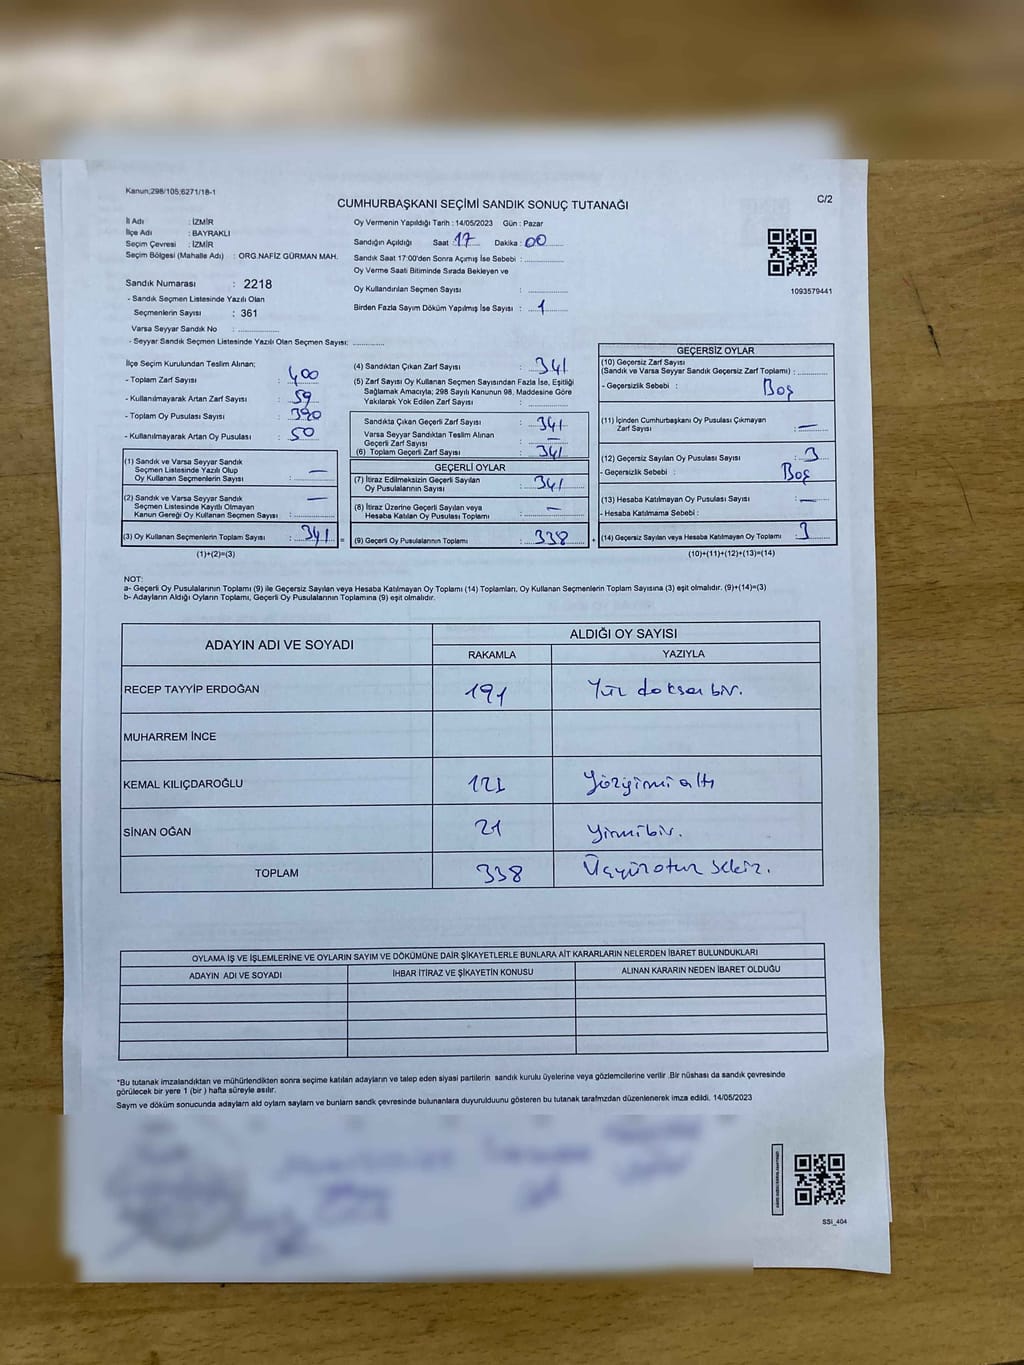 Kanun;298/105;6271/18-1
C/2
CUMHURBAŞKANI SEÇİMİ SANDIK SONUÇ TUTANAĞI
İl Adı : İZMİR
İlçe Adı : BAYRAKLI
Seçim Çevresi : İZMİR
Seçim Bölgesi (Mahalle Adı) : ORG.NAFİZ GÜRMAN MAH.
Sandık Numarası : 2218
- Sandık Seçmen Listesinde Yazılı Olan
Seçmenlerin Sayısı : 361
Varsa Seyyar Sandık No : ....................
- Seyyar Sandık Seçmen Listesinde Yazılı Olan Seçmen Sayısı: ..............
Oy Vermenin Yapıldığı Tarih : 14/05/2023 Gün : Pazar
Sandığın Açıldığı Saat 17 Dakika : 00
Sandık Saat 17:00'den Sonra Açımış İse Sebebi : ....................
Oy Verme Saati Bitiminde Sırada Bekleyen ve
Oy Kullandırılan Seçmen Sayısı : ....................
Birden Fazla Sayım Döküm Yapılmış İse Sayısı : 1
1093579441
İlçe Seçim Kurulundan Teslim Alınan;
- Toplam Zarf Sayısı : 400
- Kullanılmayarak Artan Zarf Sayısı : 59
- Toplam Oy Pusulası Sayısı : 390
- Kullanılmayarak Artan Oy Pusulası : 50
(1) Sandık ve Varsa Seyyar Sandık
Seçmen Listesinde Yazılı Olup
Oy Kullanan Seçmenlerin Sayısı : —
(2) Sandık ve Varsa Seyyar Sandık
Seçmen Listesinde Kayıtlı Olmayan
Kanun Gereği Oy Kullanan Seçmen Sayısı : —
(3) Oy Kullanan Seçmenlerin Toplam Sayısı : 341 =
(1)+(2)=(3)
(4) Sandıktan Çıkan Zarf Sayısı : 341
(5) Zarf Sayısı Oy Kullanan Seçmen Sayısından Fazla İse, Eşitliği
Sağlamak Amacıyla; 298 Sayılı Kanunun 98. Maddesine Göre
Yakılarak Yok Edilen Zarf Sayısı : ....................
Sandıkta Çıkan Geçerli Zarf Sayısı : 341
Varsa Seyyar Sandıktan Teslim Alınan
Geçerli Zarf Sayısı : —
(6) Toplam Geçerli Zarf Sayısı : 341
GEÇERLİ OYLAR
(7) İtiraz Edilmeksizin Geçerli Sayılan
Oy Pusulalarının Sayısı : 341
(8) İtiraz Üzerine Geçerli Sayılan veya
Hesaba Katılan Oy Pusulası Toplamı : —
(9) Geçerli Oy Pusulalarının Toplamı : 338 +
GEÇERSİZ OYLAR
(10) Geçersiz Zarf Sayısı
(Sandık ve Varsa Seyyar Sandık Geçersiz Zarf Toplamı) : ..............
- Geçersizlik Sebebi : Boş
(11) İçinden Cumhurbaşkanı Oy Pusulası Çıkmayan
Zarf Sayısı : —
(12) Geçersiz Sayılan Oy Pusulası Sayısı : 3
- Geçersizlik Sebebi : Boş
(13) Hesaba Katılmayan Oy Pusulası Sayısı : —
- Hesaba Katılmama Sebebi :
(14) Geçersiz Sayılan veya Hesaba Katılmayan Oy Toplamı : 3
(10)+(11)+(12)+(13)=(14)
NOT:
a- Geçerli Oy Pusulalarının Toplamı (9) ile Geçersiz Sayılan veya Hesaba Katılmayan Oy Toplamı (14) Toplamları, Oy Kullanan Seçmenlerin Toplam Sayısına (3) eşit olmalıdır. (9)+(14)=(3)
b- Adayların Aldığı Oyların Toplamı, Geçerli Oy Pusulalarının Toplamına (9) eşit olmalıdır.
ADAYIN ADI VE SOYADI ALDIĞI OY SAYISI
RAKAMLA YAZIYLA
RECEP TAYYİP ERDOĞAN 191 Yüz doksan bir.
MUHARREM İNCE
KEMAL KILIÇDAROĞLU Yüzyirmi altı
SİNAN OĞAN 21 Yirmibir.
TOPLAM 338 Üçyüzotuz sekiz.
OYLAMA İŞ VE İŞLEMLERİNE VE OYLARIN SAYIM VE DÖKÜMÜNE DAİR ŞİKAYETLERLE BUNLARA AİT KARARLARIN NELERDEN İBARET BULUNDUKLARI
ADAYIN ADI VE SOYADI İHBAR İTİRAZ VE ŞİKAYETİN KONUSU ALINAN KARARIN NEDEN İBARET OLDUĞU
*Bu tutanak imzalandıktan ve mühürlendikten sonra seçime katılan adayların ve talep eden siyasi partilerin sandık kurulu üyelerine veya gözlemcilerine verilir .Bir nüshası da sandık çevresinde
görülecek bir yere 1 (bir ) hafta süreyle asılır.
Sayım ve döküm sonucunda adayların ald oyların sayıların ve bunların sandk çevresinde bulunanlara duyurulduunu gösteren bu tutanak tarafmzdan düzenlenerek imza edildi. 14/05/2023
SSI_404